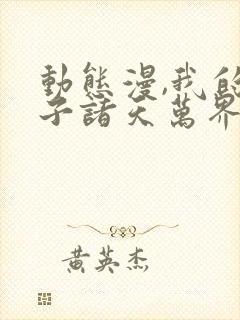 動態漫,我的
子諸天萬界
黃英杰